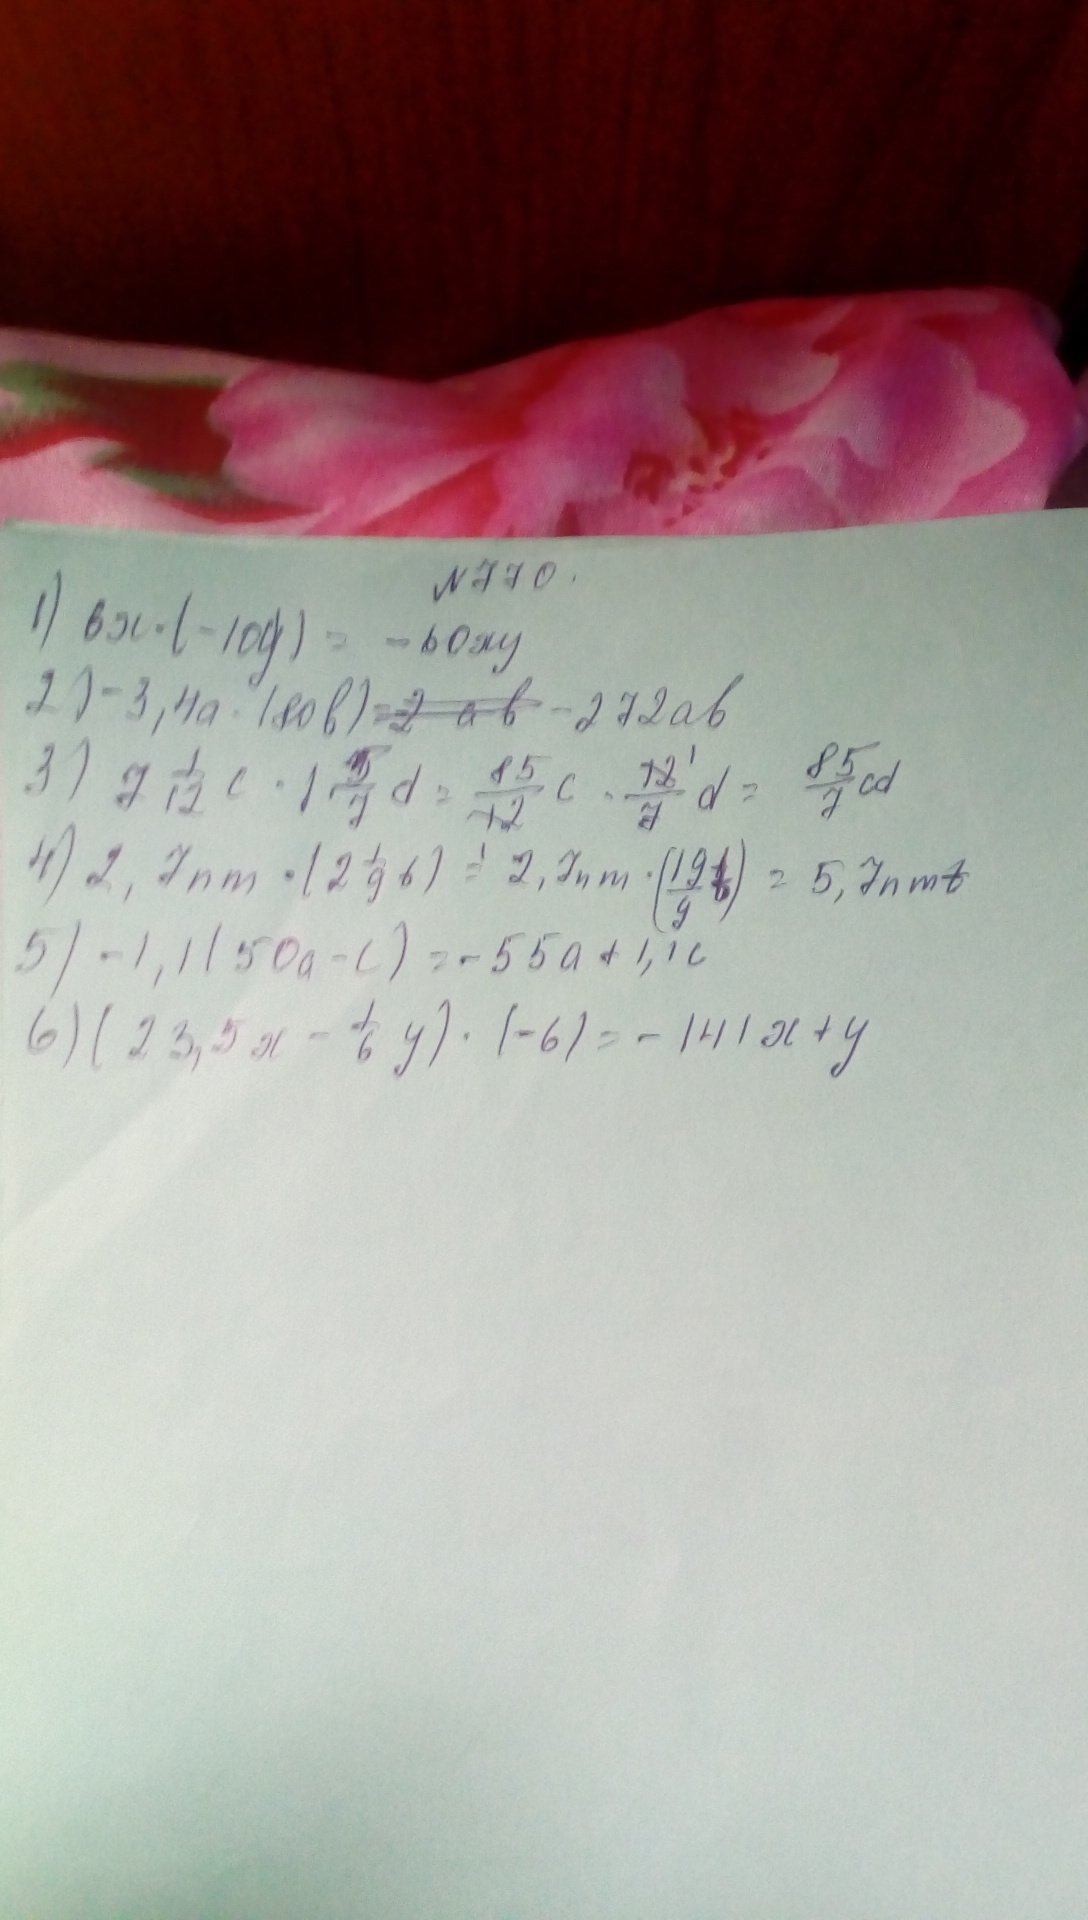 N770.
1) 6x·(-10y) = -60xy
2) -3,4a·(80b) = -272ab
3) 7 1/12 c · 1 5/7 d = 85/12 c · 12/7 d = 85/7 cd
4) 2,7nm·(2 1/9 t) = 2,7nm·(19/9 t) = 5,7nmt
5) -1,1(50a-c) = -55a+1,1c
6) (23,5x - 1/6 y)·(-6) = -141x+y